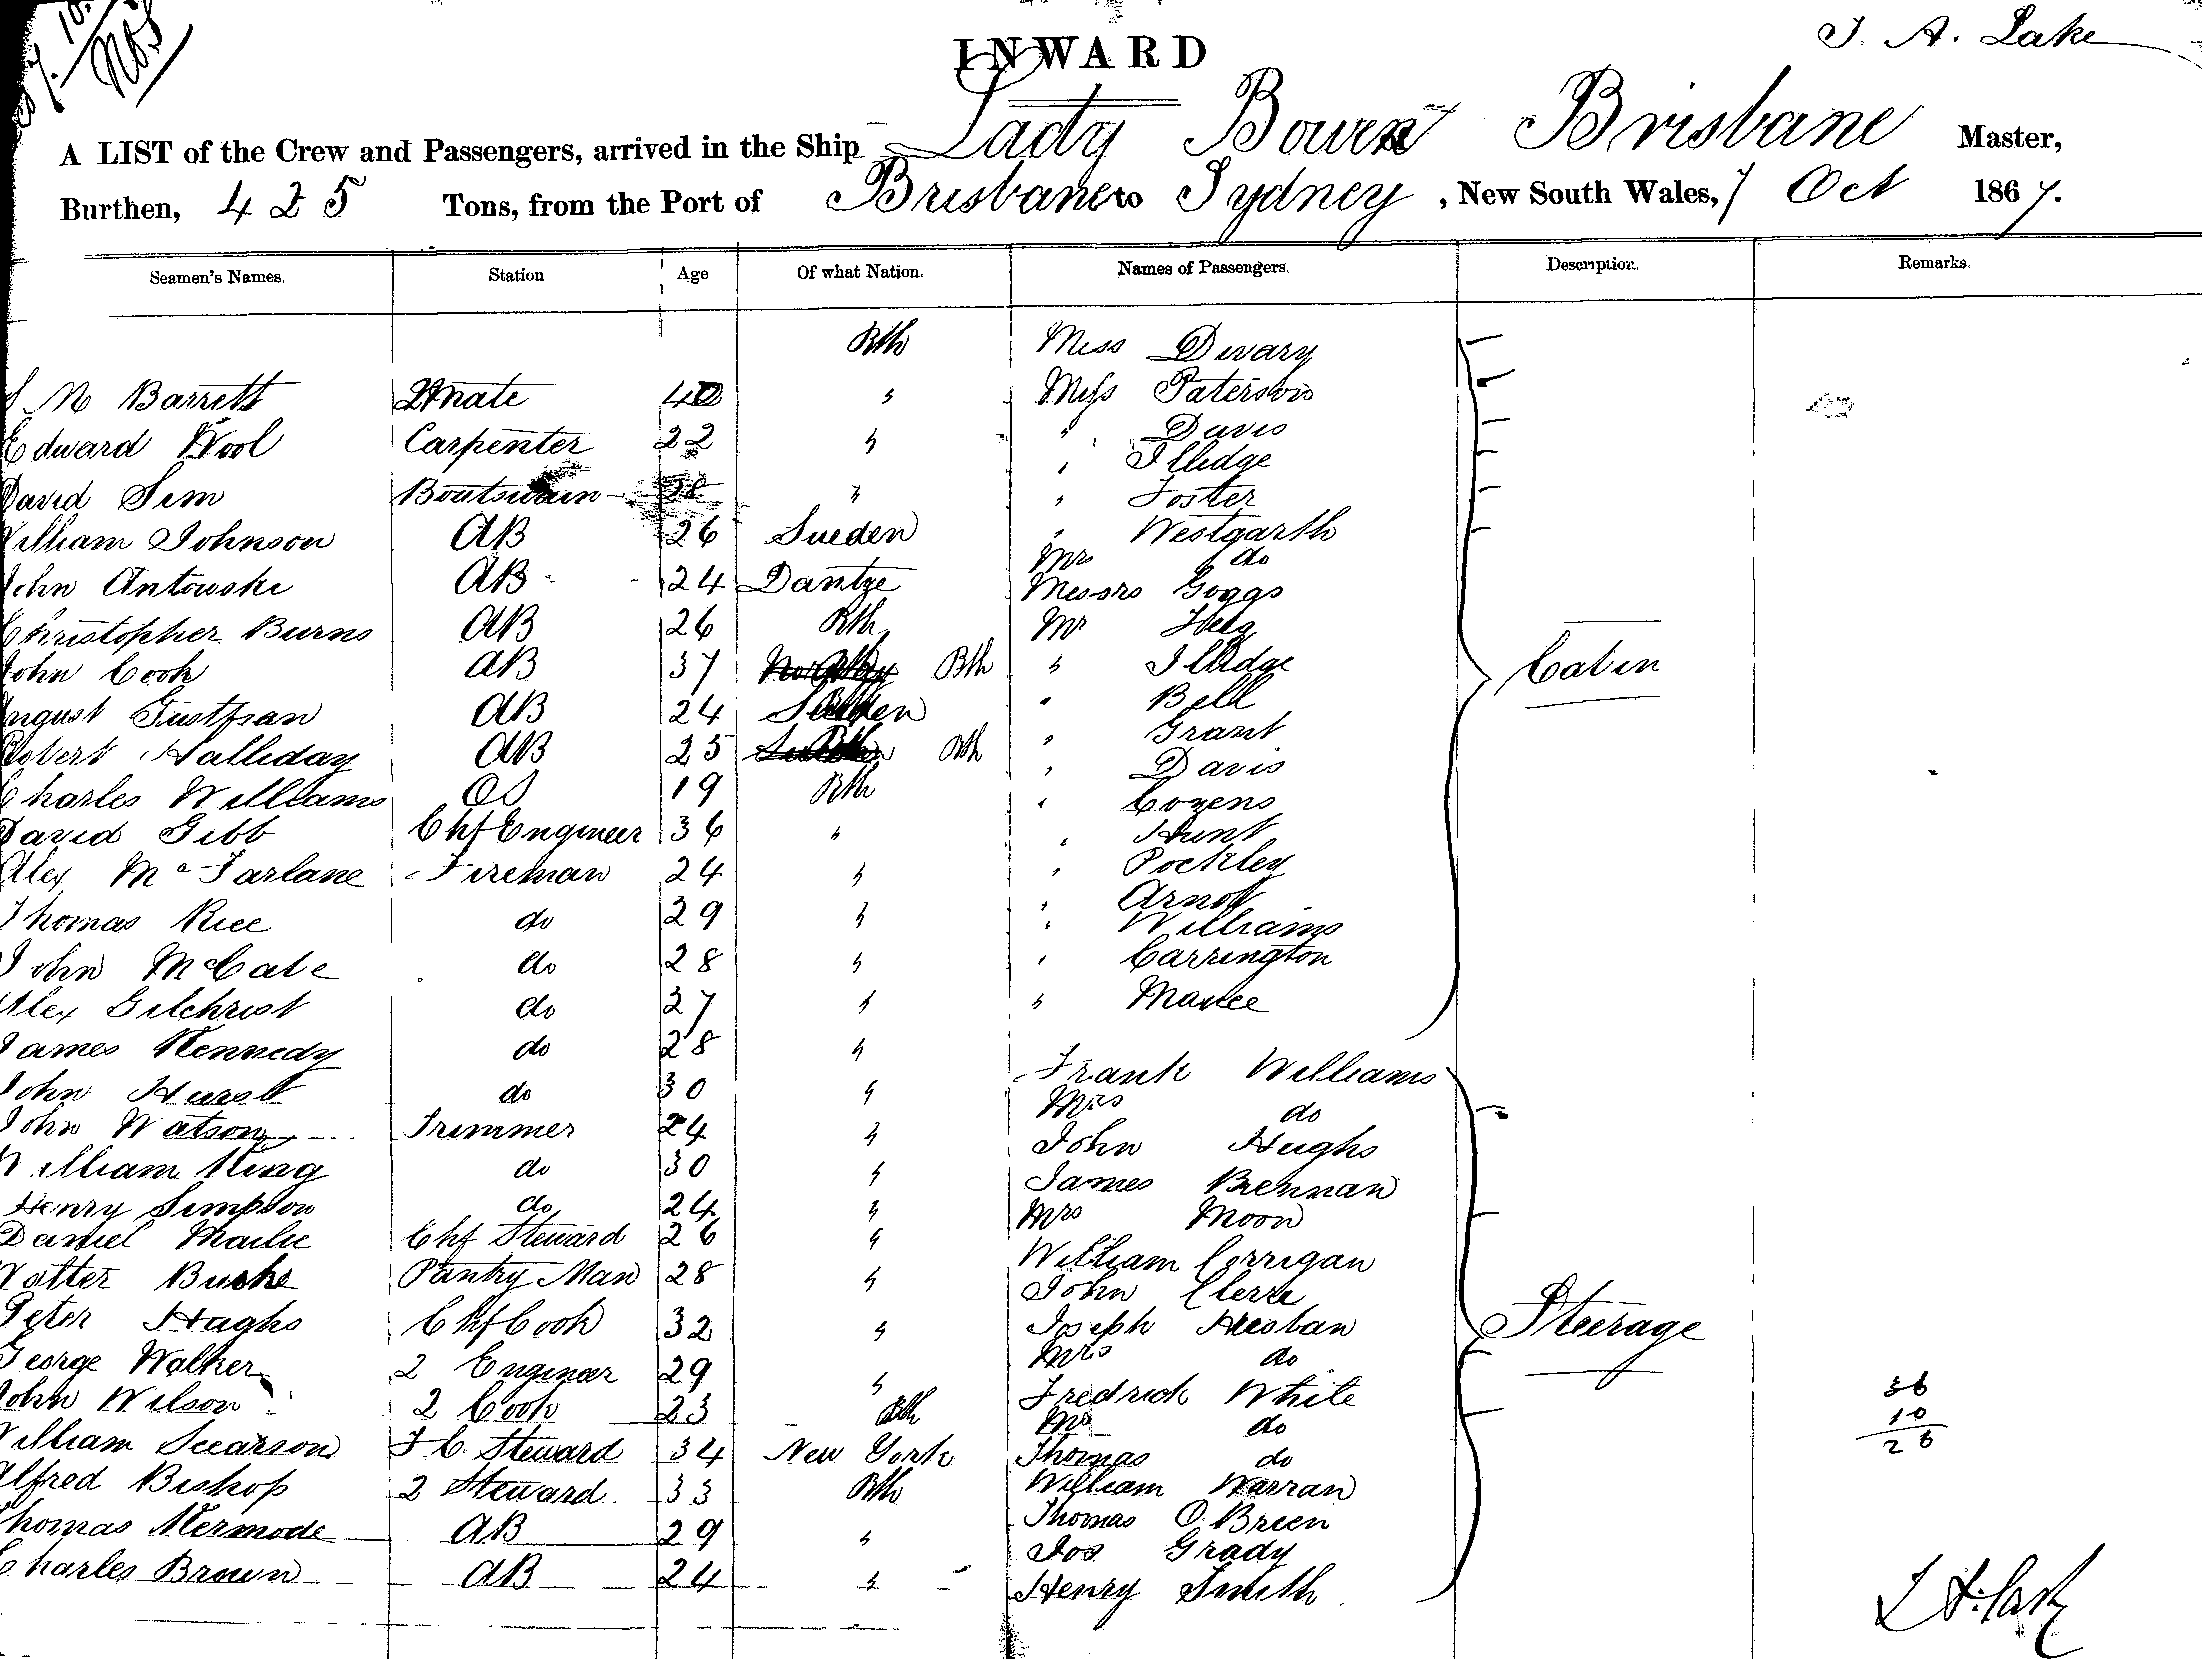 J. A. Lake
INWARD
A LIST of the Crew and Passengers, arrived in the Ship Lady Bowen Brisbane Master,
Burthen, 425 Tons, from the Port of Brisbane to Sydney, New South Wales, 7 Oct 1867.
Seamen's Names. Station Age Of what Nation. Names of Passengers. Description. Remarks.
Bth Miss Dwary
M Barrett 2 Mate 40 " Miss Paterson
Edward Wool Carpenter 22 " " Davis
" Illidge
David Sim Boatswain " " Foster
William Johnson AB 26 Sweden " Westgarth
Mrs do
John Antowski AB 24 Dantze Messrs Goggs
Christopher Burns AB 26 Bth Mr
John Cook AB 37 Bth " Illidge
August AB 24 " Bell
" Grant
Robert Halliday AB 25 Bth " Davis
Charles Williams OS 19 Bth " Cozens
David Gibb Chf Engineer 36 " " Hunt
Alex McFarlane Fireman 24 " " Pockley
" Arnott
Thomas Rice do 29 " " Williams
John McCale do 28 " " Carrington
Alex Gilchrist do 27 " "
James Kennedy do 28 "
Cabin
Frank Williams
John Hurst do 30 " Mrs do
John Watson Trimmer 24 " John Hughs
William King do 30 " James Brennan
Henry Simpson do 24 " Mrs Moon
Daniel Chf Steward 26 " William Corrigan
Burke Pantry Man 28 " John
Peter Haghs Chf Cook 32 " Joseph Heesban Steerage
Mrs do
George Walker 2 Engineer 29 " Fredrick White
John Wilson 2 Cook 23 Bth do
William Scearson F C. Steward 34 New York Thomas do
Alfred Bishop 2 Steward 33 Bth William Warran
Thomas Kermode AB 29 " Thomas O. Breen
Jos Grady
Charles Brown AB 24 " Henry Smith
36
10
26